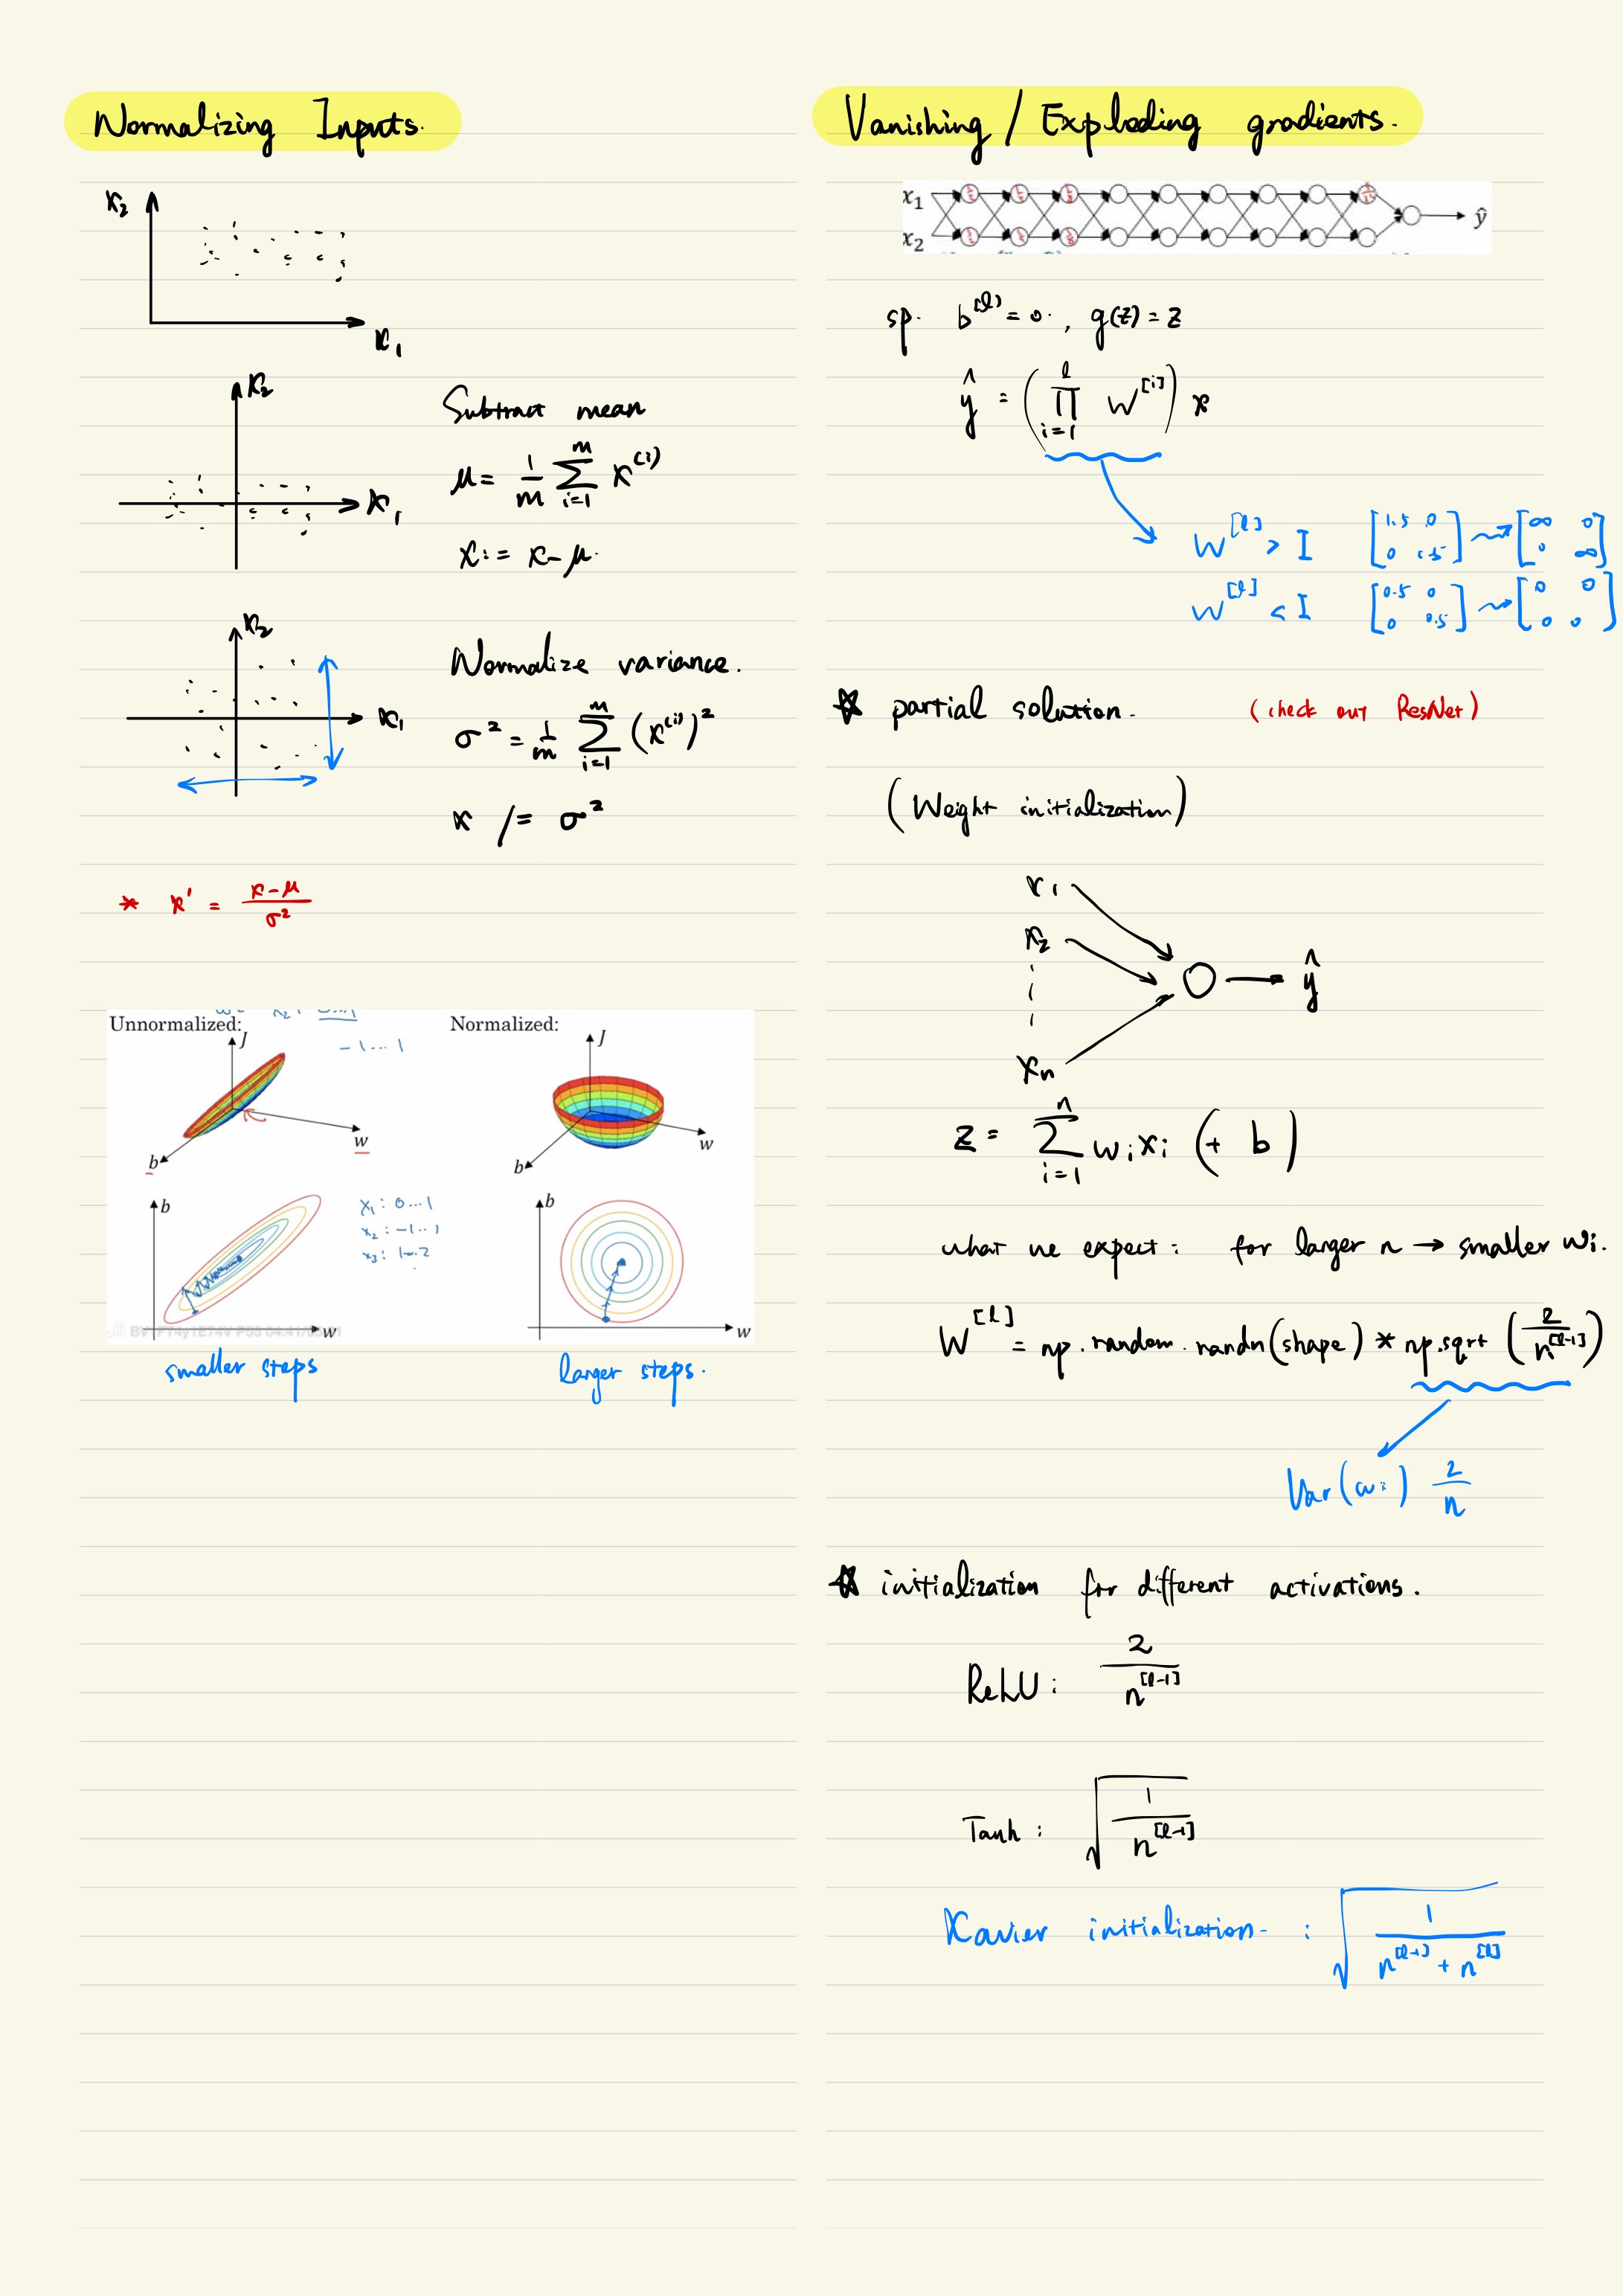 Normalizing Inputs.
x₂
x₁
x₂
x₁
Subtract mean
μ = 1/m ∑_{i=1}^{m} x^{(i)}
x := x - μ.
x₂
x₁
Normalize variance.
σ² = 1/m ∑_{i=1}^{m} (x^{(i)})²
x /= σ²
* x' = (x-μ)/σ²
Unnormalized:
-1...1
J
w
b
Normalized:
J
w
b
b
w
x₁: 0...1
x₂: -1...1
x₃: 1...2
b
w
smaller steps
larger steps.
Vanishing / Exploding gradients.
x₁
x₂
ŷ
sp. b^{[l]} = 0., g(z) = z
ŷ = (∏_{i=1}^{l} W^{[i]}) x
W^{[l]} > I [1.5 0 0 1.5] ⇝ [∞ 0 0 ∞]
W^{[l]} < I [0.5 0 0 0.5] ⇝ [0 0 0 0]
☆ partial solution. (check out ResNet)
(Weight initialization)
x₁
x₂
xₙ
ŷ
z = ∑_{i=1}^{n} wᵢxᵢ (+ b)
what we expect: for larger n → smaller wᵢ.
W^{[l]} = np.random.randn(shape) * np.sqrt (2/n^{[l-1]})
Var(wᵢ) 2/n
☆ initialization for different activations.
ReLU: 2/n^{[l-1]}
Tanh: √(1/n^{[l-1]})
Xavier initialization- : √(1/(n^{[l-1]} + n^{[l]}))